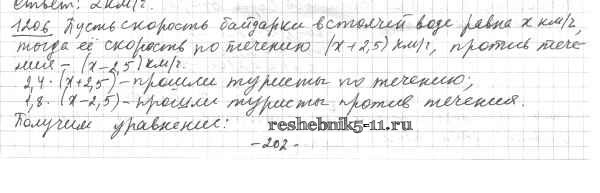 Ответ: 2 км/ч.
1206 Пусть скорость байдарки в стоячей воде равна x км/ч,
тогда её скорость по течению (x+2,5) км/ч, против тече-
ния - (x-2,5) км/ч.
2,4·(x+2,5) - прошли туристы по течению;
1,8·(x-2,5) - прошли туристы против течения.
Получим уравнение:
reshebnik5-11.ru
-202-